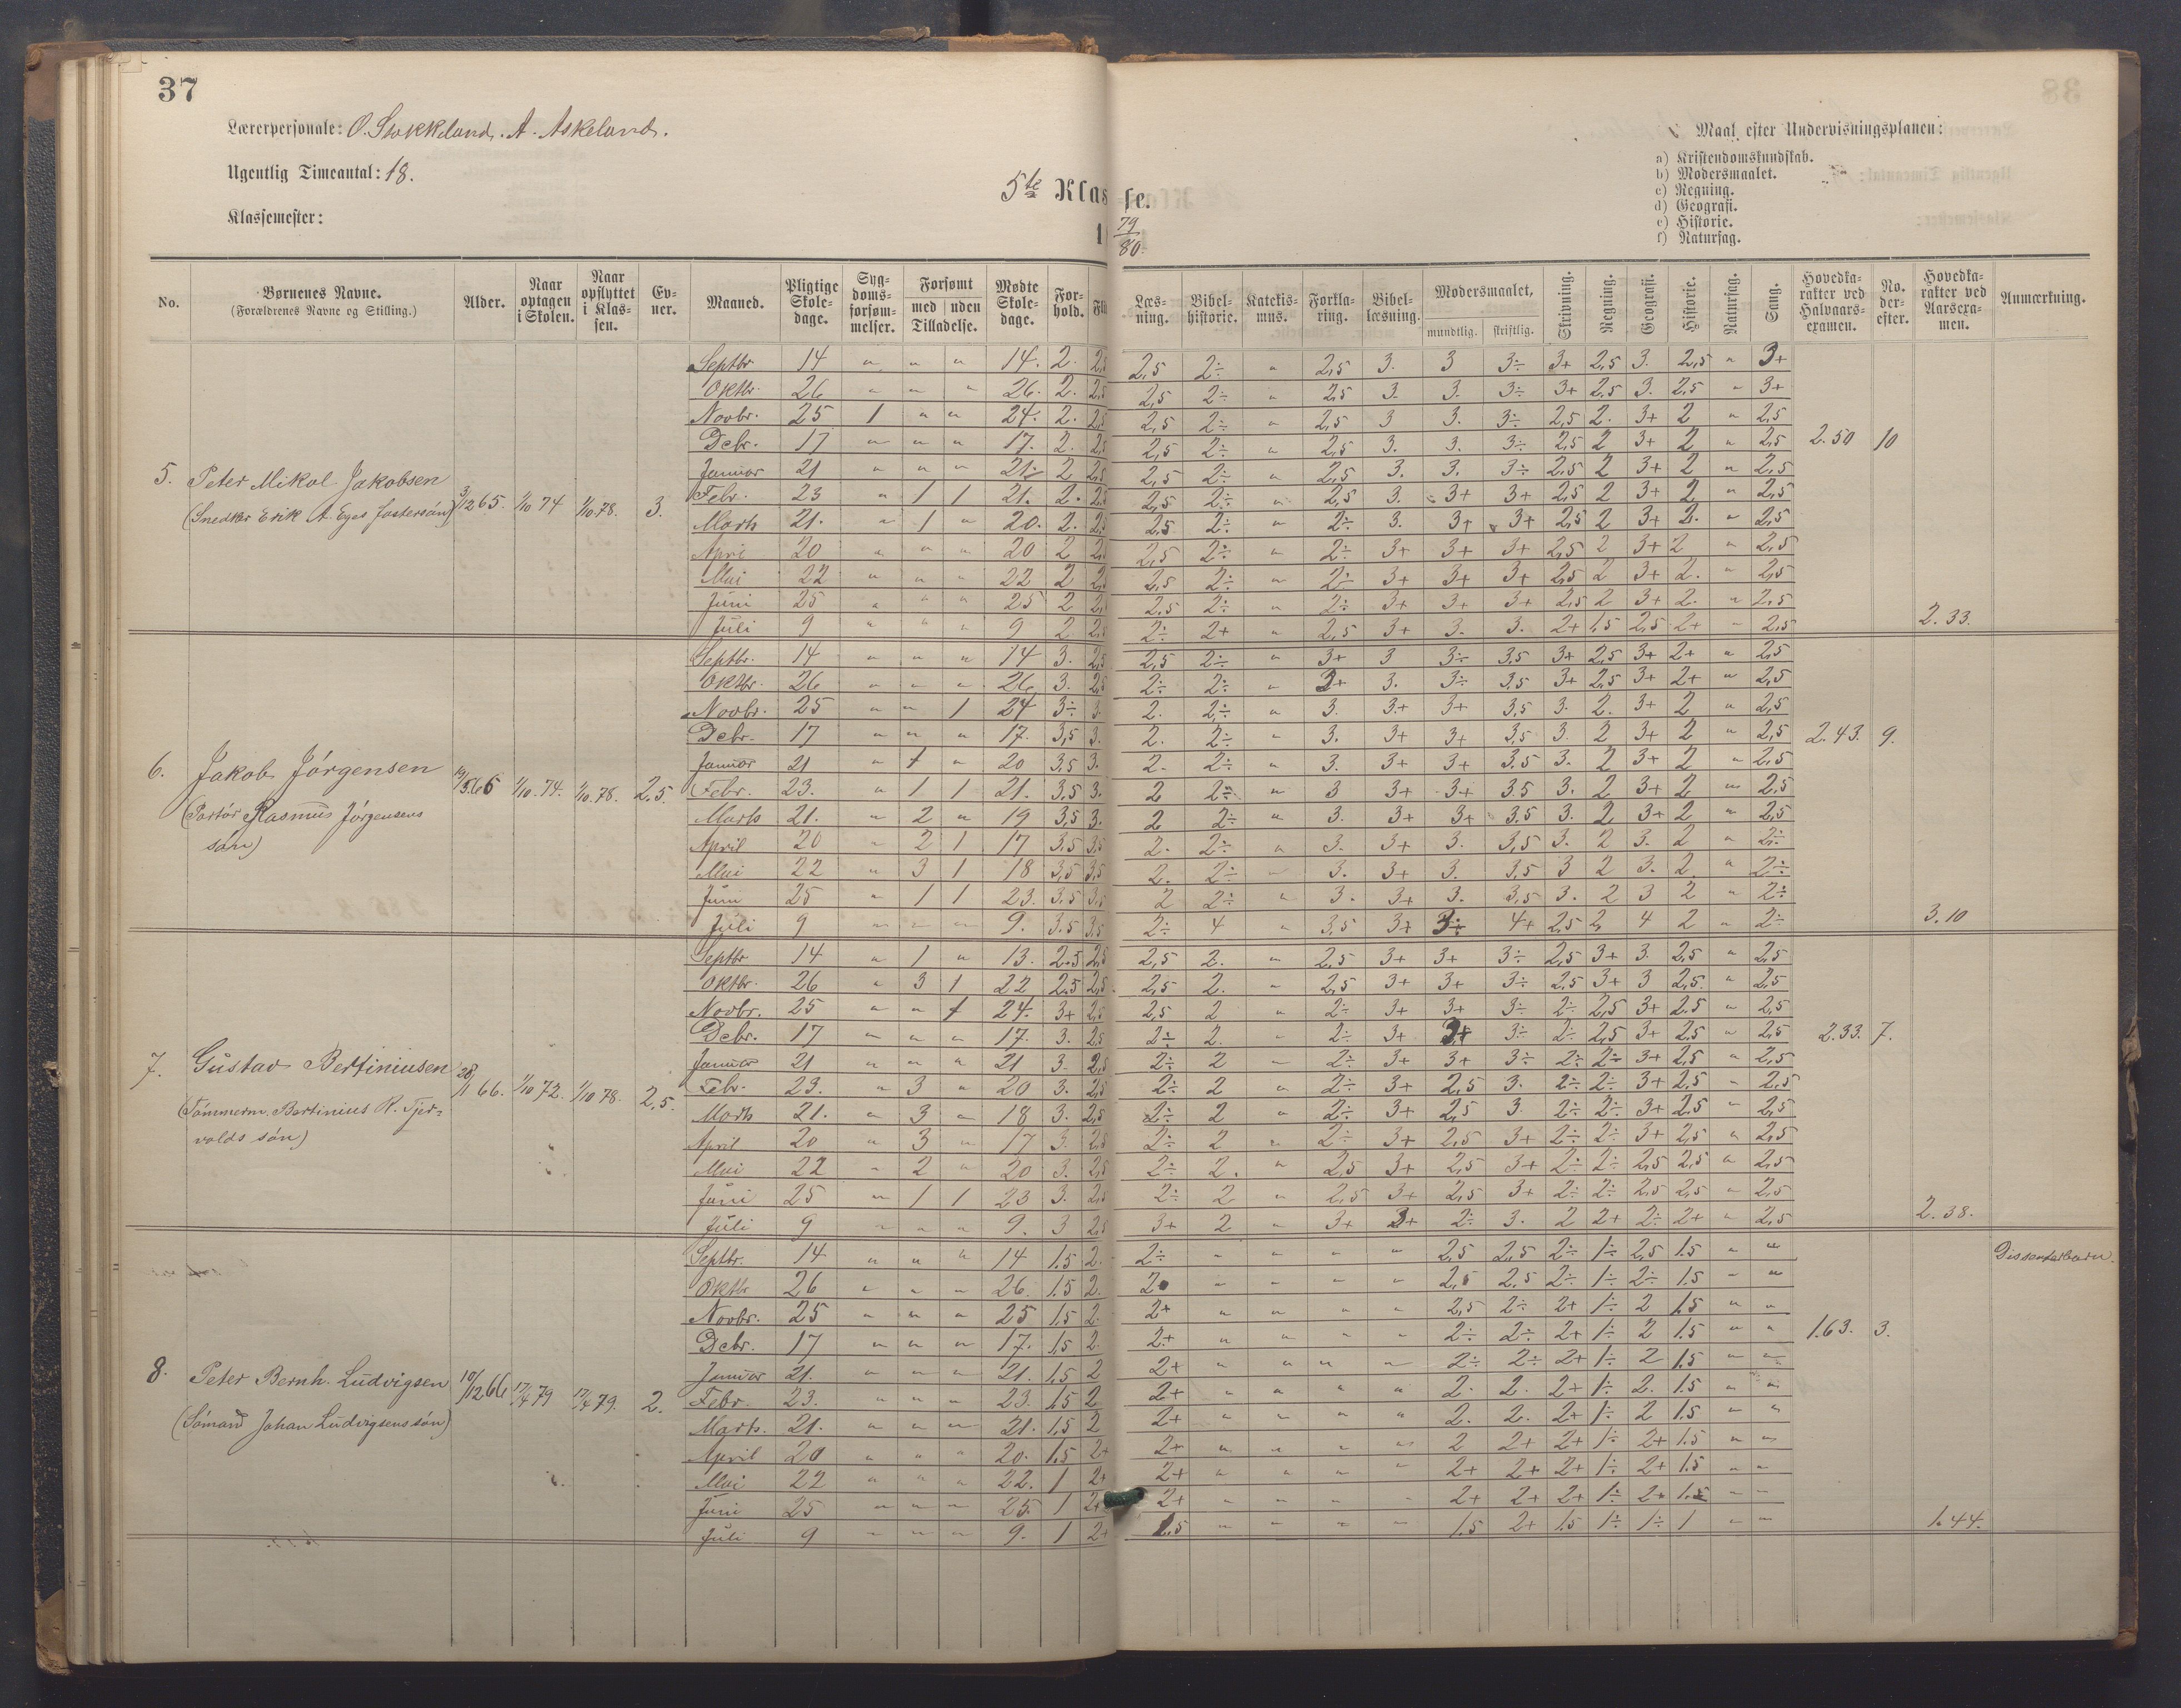 37
Lærerpersonale: O. Stokkeland. A. Askeland.
Ugentlig Timeantal: 18.
Klassemester:
5te Klasse.
79
80.
Maal efter Undervisningsplanen:
a) Kristendomskundskab.
b) Modersmaalet.
c) Regning.
d) Geografi.
e) Historie.
f) Naturfag.
No. Børnenes Navne. (Forældrenes Navne og Stilling.) Alder. Naar optagen i Skolen. Naar opflyttet i Klassen. Evner. Maaned. Pligtige Skoledage. Sygdomsforsømmelser. Forsømt med uden Tilladelse. Mødte Skoledage. Forhold. Læsning. Bibelhistorie. Katekismus. Forklaring. Bibellæsning. Modersmaalet, mundtlig. skriftlig. Skrivning. Regning. Geografi. Historie. Naturfag. Sang. Hovedkarakter ved Halvaarsexamen. No. derefter. Hovedkarakter ved Aarsexamen. Anmærkning.
5. Peter Mikal Jakobsen 3/12 65. 1/10 74 1/10.78. 3.
(Snedker Erik A. Eges fostersøn)
Septbr 14 " " " 14. 2. 2,5 2,5 2÷ " 2,5 3. 3 3÷ 3+ 2,5 3. 2,5 " 3+
Oktbr. 26 " " " 26. 2. 2,5 2,5 2÷ " 2,5 3. 3. 3÷ 3+ 2,5 3. 2,5 " 3+
Novbr. 25 1 " " 24. 2. 2,5 2,5 2÷ " 2,5 3 3. 3÷ 2,5 2. 3+ 2 " 2,5
Debr. 17 " " " 17. 2. 2,5 2,5 2÷ " 2,5 3. 3. 3÷ 2,5 2 3+ 2 " 2,5 2.50 10
Januar 21 " " " 21 2 2,5 2,5 2÷ " 2,5 3. 3. 3÷ 2,5 2 3+ 2 " 2,5
Febr. 23 " 1 1 21. 2. 2,5 2,5 2÷ " 2,5 3. 3+ 3+ 2,5 2 3+ 2 " 2,5
Marts 21. " 1 " 20. 2. 2,5 2,5 2÷ " 2÷ 3. 3+ 3+ 2,5 2 3+ 2. " 2,5
April 20 " " " 20 2 2,5 2,5 2÷ " 2÷ 3+ 3+ 3+ 2,5 2 3+ 2 " 2,5
Mai 22 " " " 22 2 2,5 2,5 2÷ " 2÷ 3+ 3+ 3+ 2,5 2 3+ 2. " 2,5
Juni 25 " " " 25 2 2,5 2.5 2÷ " 2÷ 3+ 3+ 3+ 2,5 2 3+ 2. " 2,5
Juli 9 " " " 9 2 2,5 2÷ 2+ " 2,5 3+ 3. 3. 2+ 1,5 2,5 2+ " 2,5 2.33.
6. Jakob Jörgensen 1/10.74. 1/10.78. 2,5.
(Portör Rasmus Jörgensens
sön)
Septbr. 14 " " " 14 3. 2,5 2,5 2÷ " 3+ 3 3÷ 3,5 3+ 2,5 3+ 2+ " 2,5
Oktbr. 26 " " " 26 3. 2,5 2÷ 2÷ " 3+ 3. 3÷ 3,5 3+ 2,5 3+ 2+ " 2,5
Novbr. 25 " " 1 24 3÷ 3. 2. 2÷ " 3. 3+ 3+ 3,5 3. 2. 3+ 2 " 2,5
Debr. 17 " " " 17. 3,5 3. 2. 2÷ " 3. 3+ 3+ 3,5 3. 2 3+ 2 " 2,5 2.43. 9.
Januar 21 " 1 " 20 3,5 3. 2. 2÷ " 3. 3+ 3+ 3,5 3. 2 3+ 2 " 2,5
Febr. 23. " 1 1 21. 3,5 3. 2 2÷ " 3 3+ 3+ 3.5 3. 2 3+ 2 " 2,5
Marts 21. " 2 " 19 3,5 3. 2 2÷ " 3. 3+ 3+ 3,5 3. 2 3+ 2 " 2,5
April 20 " 2 1 17 3,5 3,5 2. 2÷ " 3. 3+ 3. 3,5 3. 2 3. 2 " 2÷
Mai 22 " 3 1 18 3,5 3,5 2. 2÷ " 3. 3+ 3. 3,5 3 2 3. 2. " 2÷
Juni 25 " 1 1 23. 3,5 3,5 2 2÷ " 3. 3+ 3. 3,5 3. 2 3 2 " 2÷
Juli 9 " " " 9. 3.5 3,5 2÷ 4 " 3,5 3+ 3÷ 4+ 2,5 2 4 2 " 2÷ 3.10
7. Gustav Bertiniusen 28/1 66. 1/10 72. 1/10 78. 2,5.
(Tömmerm. Bertinius R. Tjer-
volds sön)
Septbr 14 " 1 " 13. 2.5 2,5 2,5 2. " 2,5 3+ 3+ 3÷ 2,5 3+ 3. 2,5 " 2,5
Oktbr. 26 " 3 1 22 2,5 2,5 2,5 2. " 2,5 3+ 3+ 3÷ 2,5 3+ 3 2,5 " 2,5
Novbr. 25 " " 1 24. 3+ 2,5 2,5 2 " 2÷ 3+ 3+ 3÷ 2÷ 2,5 3+ 2.5 " 2,5
Debr. 17 " " " 17. 3. 2,5 2÷ 2. " 2÷ 3+ 3+ 3÷ 2÷ 2,5 3+ 2,5 " 2,5 2.33. 7.
Januar 21 " " " 21 3. 2,5 2÷ 2 " 2÷ 3+ 3+ 3÷ 2÷ 2÷ 3+ 2,5 " 2,5
Febr. 23. " 3 " 20 3. 2,5 2÷ 2 " 2÷ 3+ 2,5 3. 2÷ 2÷ 3+ 2,5 " 2,5
Marts 21. " 3 " 18 3. 2,5 2÷ 2 " 2÷ 3+ 2,5 3. 2÷ 2÷ 3+ 2.5 " 2,5
April 20 " 3 " 17 3 2,5 2÷ 2 " 2÷ 3+ 2,5 3+ 2÷ 2÷ 3+ 2,5 " 2,5
Mai 22 " 2 " 20 3. 2,5 2÷ 2. " 2,5 3+ 2,5 3+ 2÷ 2÷ 2,5 2,5 " 2,5
Juni 25 " 1 1 23 3. 2,5 2÷ 2 " 2,5 3+ 2,5 3+ 2÷ 2÷ 2,5 2,5 " 2,5
Juli 9 " " " 9. 3 2,5 3+ 2 " 3+ 3+ 2÷ 3. 2 2+ 2÷ 2+ " 2,5 2.38.
8. Peter Bernh. Ludvigsen 10/12 66 17/4 79 17/4 79. 2.
(Sömand Johan Ludvigsens sön)
Septbr. 14 " " " 14 1.5 2. 2÷ " " " " 2,5 2,5 2÷ 1÷ 2,5 1.5 " " Dissenterbarn.
Oktbr 26 " " " 26. 1.5 2. 2 " " " " 2,5 2.5 2÷ 1÷ 2÷ 1.5 " "
Novbr. 25 " " " 25 1.5 2. 2+ " " " " 2,5 2÷ 2+ 1÷ 2 1.5 " "
Debr. 17 " " " 17. 1,5 2. 2+ " " " " 2÷ 2÷ 2+ 1÷ 2 1.5 " " 1.63. 3.
Januar 21. " " " 21. 1,5 2 2+ " " " " 2÷ 2÷ 2+ 1÷ 2 1.5 " "
Febr. 23. " " " 23. 1,5 2 2+ " " " " 2. 2. 2+ 1÷ 2. 1.5 " "
Marts. 21. " " " 21. 1,5 2 2+ " " " " 2. 2. 2+ 1÷ 2 1.5 " "
April 20 " " " 20. 1.5 2+ 2+ " " " " 2 2+ 2+ 1÷ 2+ 1.5 " "
Mai 22 " " " 22. 1 2+ 2+ " " " " 2+ 2+ 2+ 1÷ 2+ 1.5 " "
Juni 25 " " " 25. 1 2+ 2+ " " " " 2+ 2+ 2+ 1÷ 2+ 1.5 " "
Juli 9 " " " 9. 1 2+ 1.5 " " " " 1.5 2+ 1.5 1÷ 1÷ 1 " " 1.44.